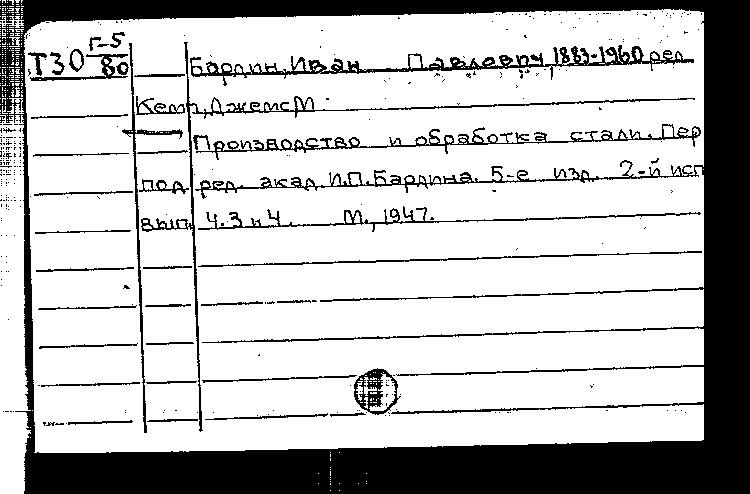 Г-5
Т30 80
Бардин, Иван Павлович 1883-1960 ред.
Кемп, Джемс М
Производство и обработка стали. Пер
под ред. акад. И.П. Бардина. 5-е изд. 2-й исп
вып. Ч. 3 и 4. М., 1947.